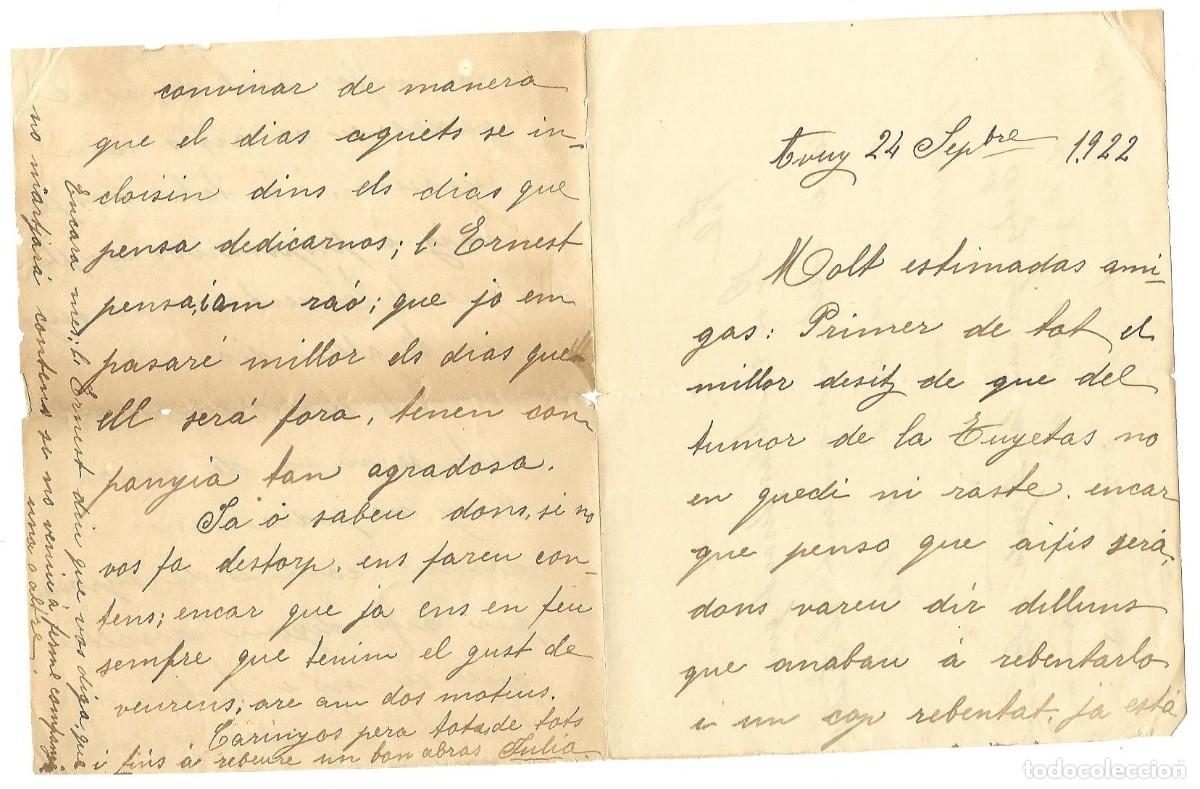 Avuy 24 Sepbre 1922
Molt estimadas ami-
gas: Primer de tot el
millor desitz de que del
tumor de la Tuyetas no
en quedi ni raste. encar
que penso que aixis será,
dons vareu dir dilluns
que anabau á rebentarlo
i un cop rebentat, ja está
convinar de manera
que el dias aquets se in-
cloisin dins els dias que
pensa dedicarnos; l. Ernest
pensa, i am raó; que jo em
pasaré millor els dias que
ell será fora, tenen con-
panyia tan agradosa.
Ja ó sabeu dons, si no
vos fa destorp, ens fareu con-
tens; encar que ja ens en feu
sempre que tenim el gust de
veurens; are am dos motius.
Carinyos pera totas de tots
i fins á rebeure un bon abras Julia
Encara mes; l. Ernest diu que vos diga que
no marxará contens si no veniu á ferme companyi
una o altre.
todocoleccion